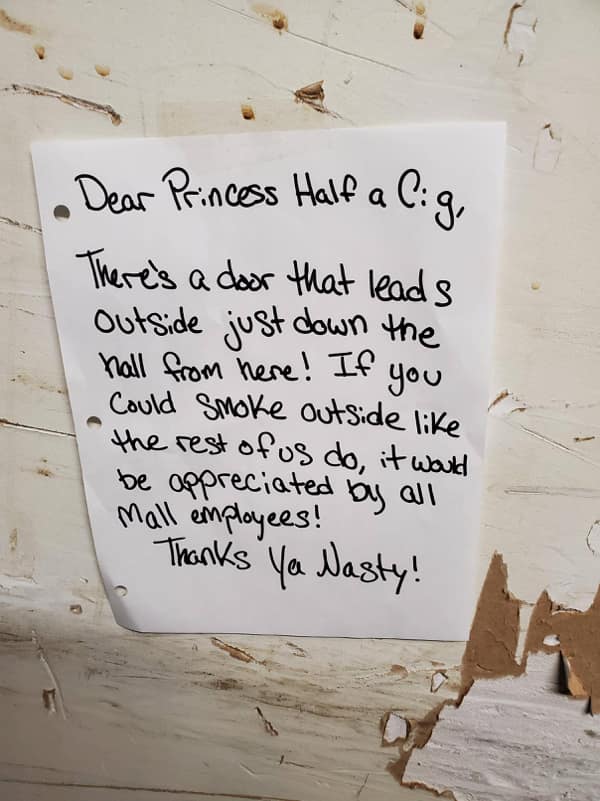 Dear Princess Half a Cig,
There's a door that leads
outside just down the
hall from here! If you
Could Smoke outside like
the rest of us do, it would
be appreciated by all
Mall employees!
Thanks Ya Nasty!